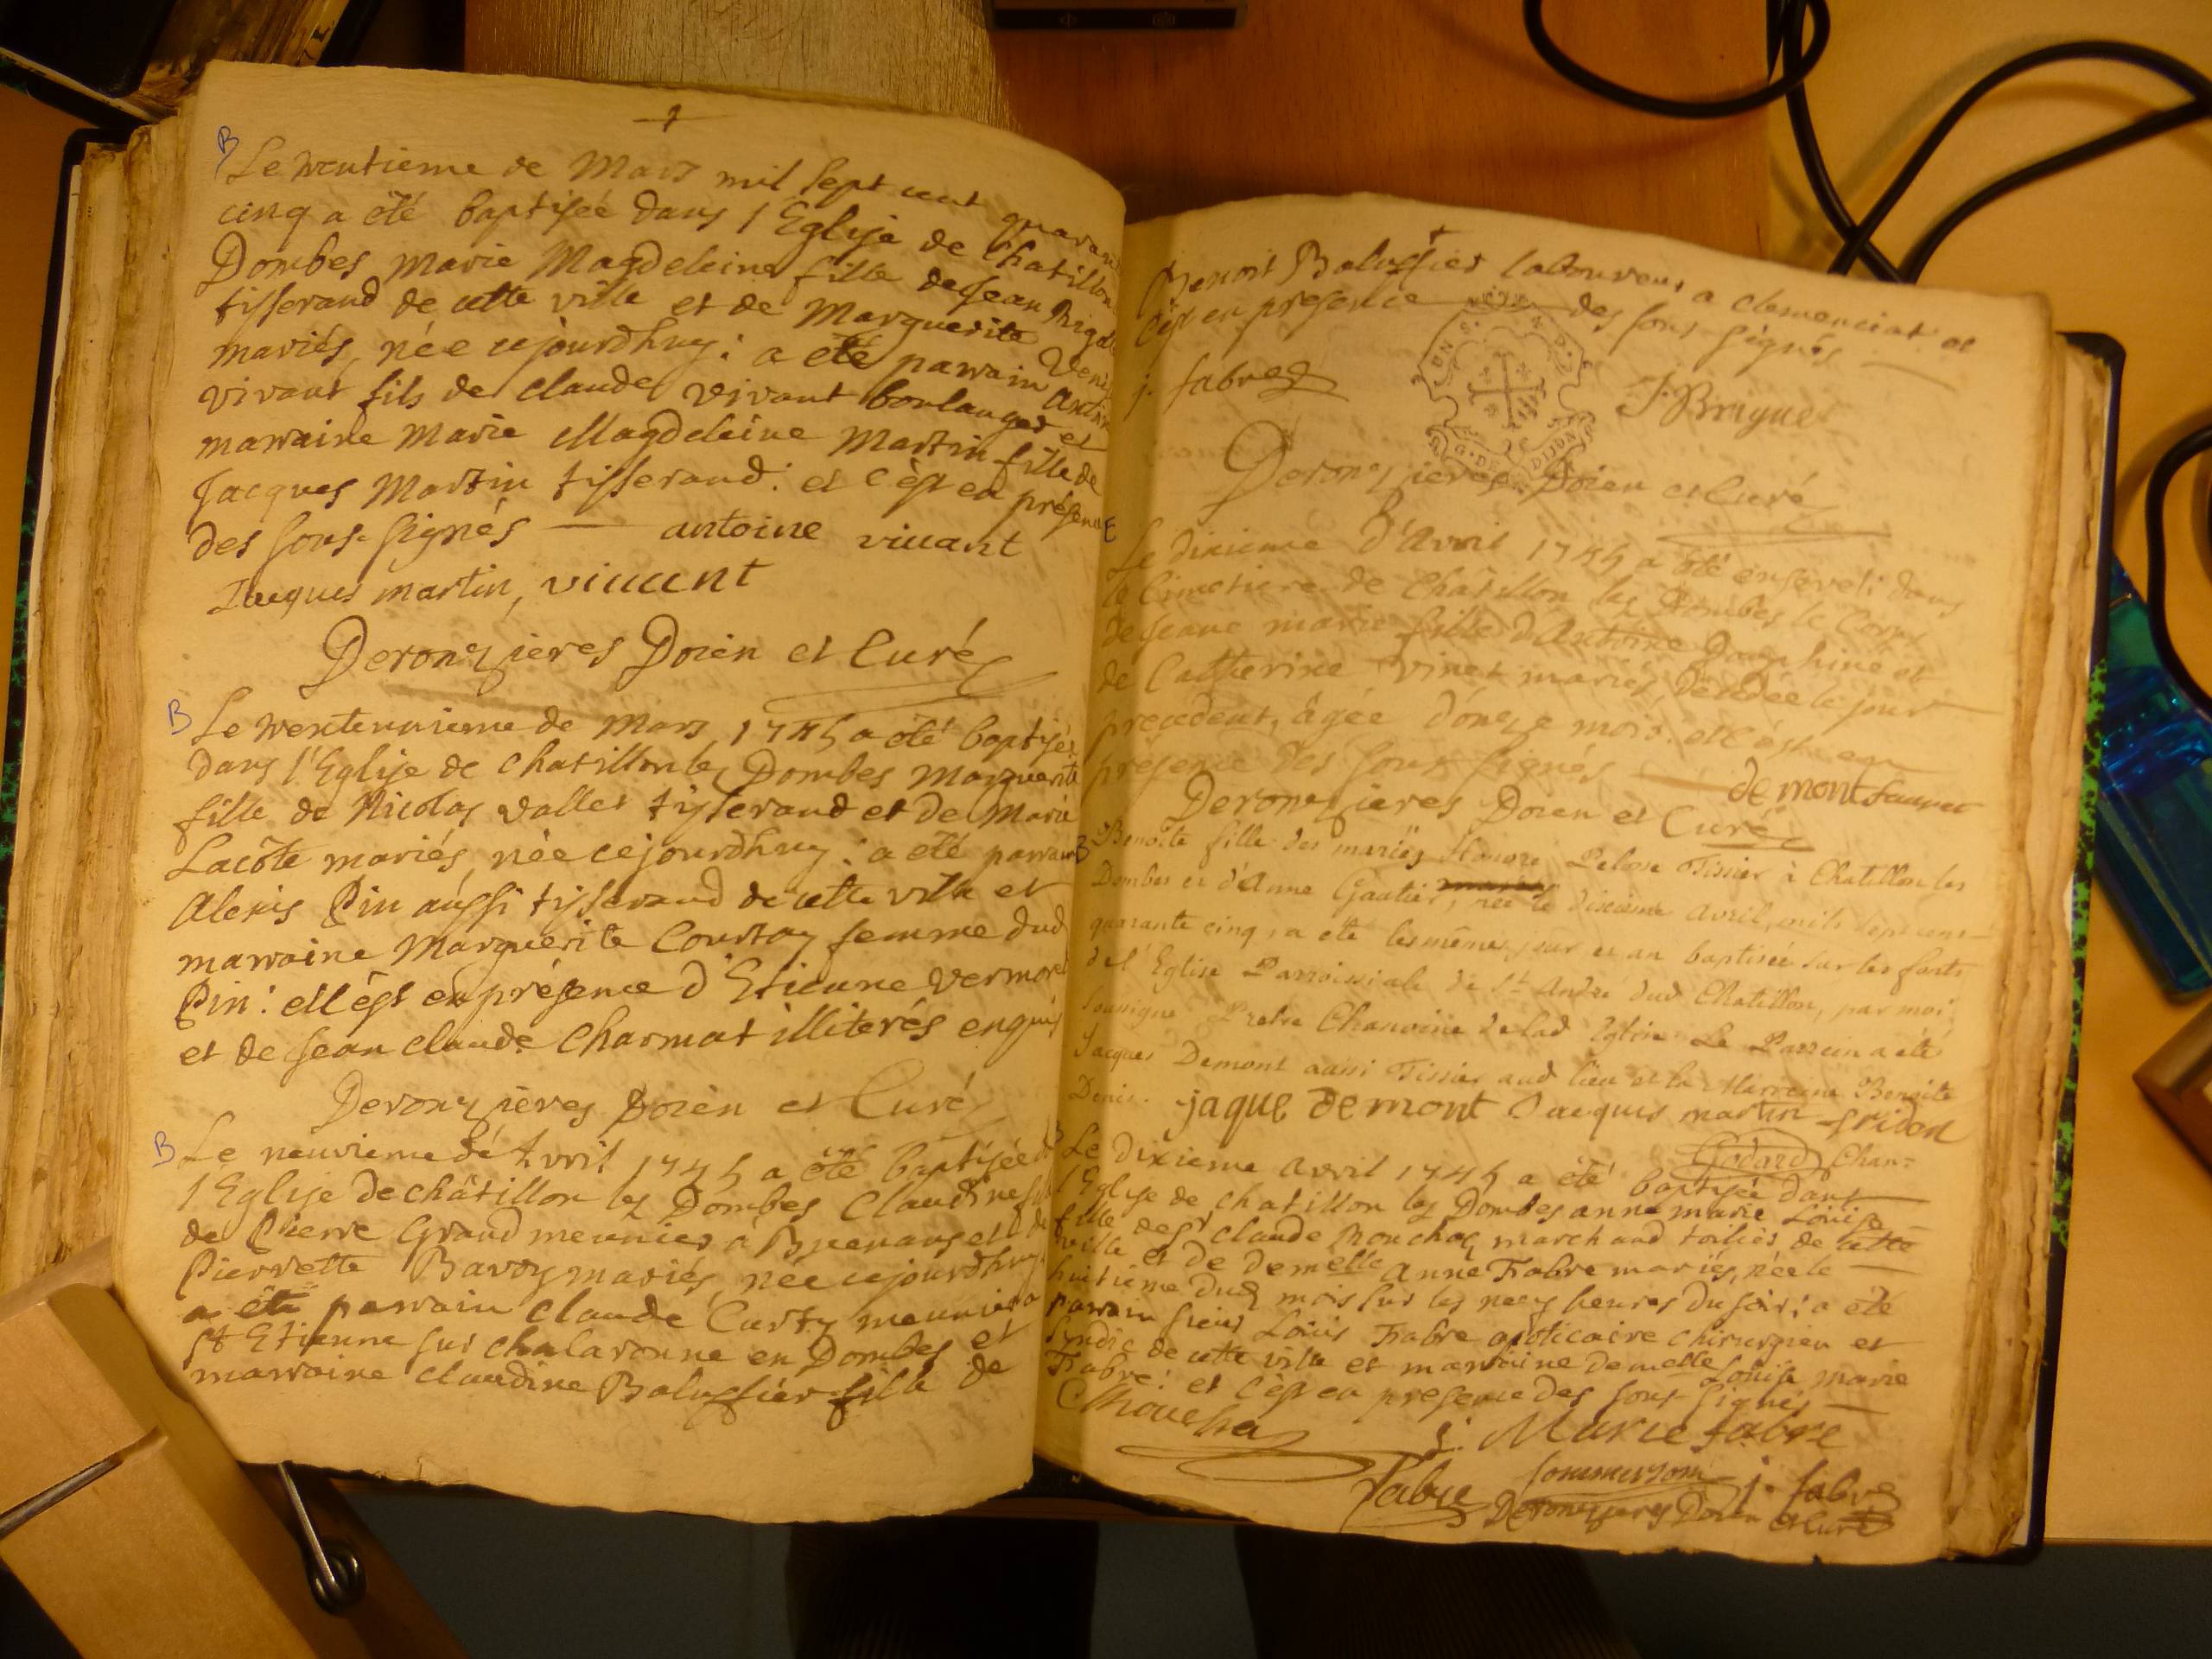 B
Le trentieme de Mars mil sept cent quaran
cinq a été baptisée dans l'Eglise de Chatillon
Dombes Marie Magdeleine fille de Jean Rigol
tisserand de cette ville et de Marguerite
mariés, née cejourdhuy: a été parrain Antoine
vivant fils de claude vivant boulanger et
marraine Marie Magdeleine Martin fille de
Jacques Martin tisserand: et c'est en présence
des sous signés — antoine viuant
Jacques martin, viucent
Deronzieres Doien et Curé
B
Le trenteunieme de Mars 1745 a été baptisée
dans l'Eglise de Chatillon les Dombes Marguerite
fille de Nicolas Vallet tisserand et de Marie
Lacôte mariés, née cejourdhuy: a été parrain
Alexis Pin aussi tisserand de cette ville et
marraine Marguerite Courtoy femme dud
Pin: et c'est en présence d'Etienne Vermorel
et de Jean claude Charmat illiterés enquis
Deronzieres Doien et Curé
B
Le neuvieme d'Avril 1745 a été baptisée
l'Eglise de châtillon les Dombes Claudine
de Pierre Grand meunier à et de
Pierrette mariés, née cejourdhuy
a été parrain claude Curty meunier a
St Etienne sur chalaronne en Dombes et
marraine claudine Balussier fille de
Benoit Balussier laboureur a clemenciat et
c'est en presence des sous signés
j. fabre
J. Brigue
G. DE DIJON
Deronzieres Doien et Curé
Le dixieme d'Avril 1745 a été enseveli dans
le Cimetiere de Châtillon les Dombes le Corps
de Jeane marie fille d'Antoine Dauphiné et
de Catherine Vinet mariés, décédée le jour
precedent, âgée d'onze mois: et c'est en
présence des sous signés — demont
Deronzieres Doien et Curé
B
Benoîte fille des mariés Honoré Tissier à Chatillon les
Dombes et d'Anne Gautier, née le dixieme Avril, mil sept cent
quarante cinq, a été les mêmes jour et an baptisée sur les fonts
de l'Eglise Parroissiale de St André dud Chatillon, par moi
soussigné Pretre Chanoine de lad Eglise Le Parrein a été
Jacques Demont aussi Tissier aud lieu et la Marreine Benoite
Denis. jaque demont Jacques martin fridon
Godard Chan:
Le Dixieme avril 1745 a été baptisée dans
l'Eglise de chatillon les Dombes anne marie Louise
fille de sr claude Monchoc marchand toilier de cette
ville et de demelle Anne Fabre mariés, née le
huitieme dud mois sur les heures du soir: a été
parrain sieur Louis Fabre apoticaire chirurgien et
syndic de cette ville et marraine demelle Louise marie
Fabre: et c'est en presence des sous signés
j. Marie fabre
Fabre j. fabre
Deronzieres Doien et Curé